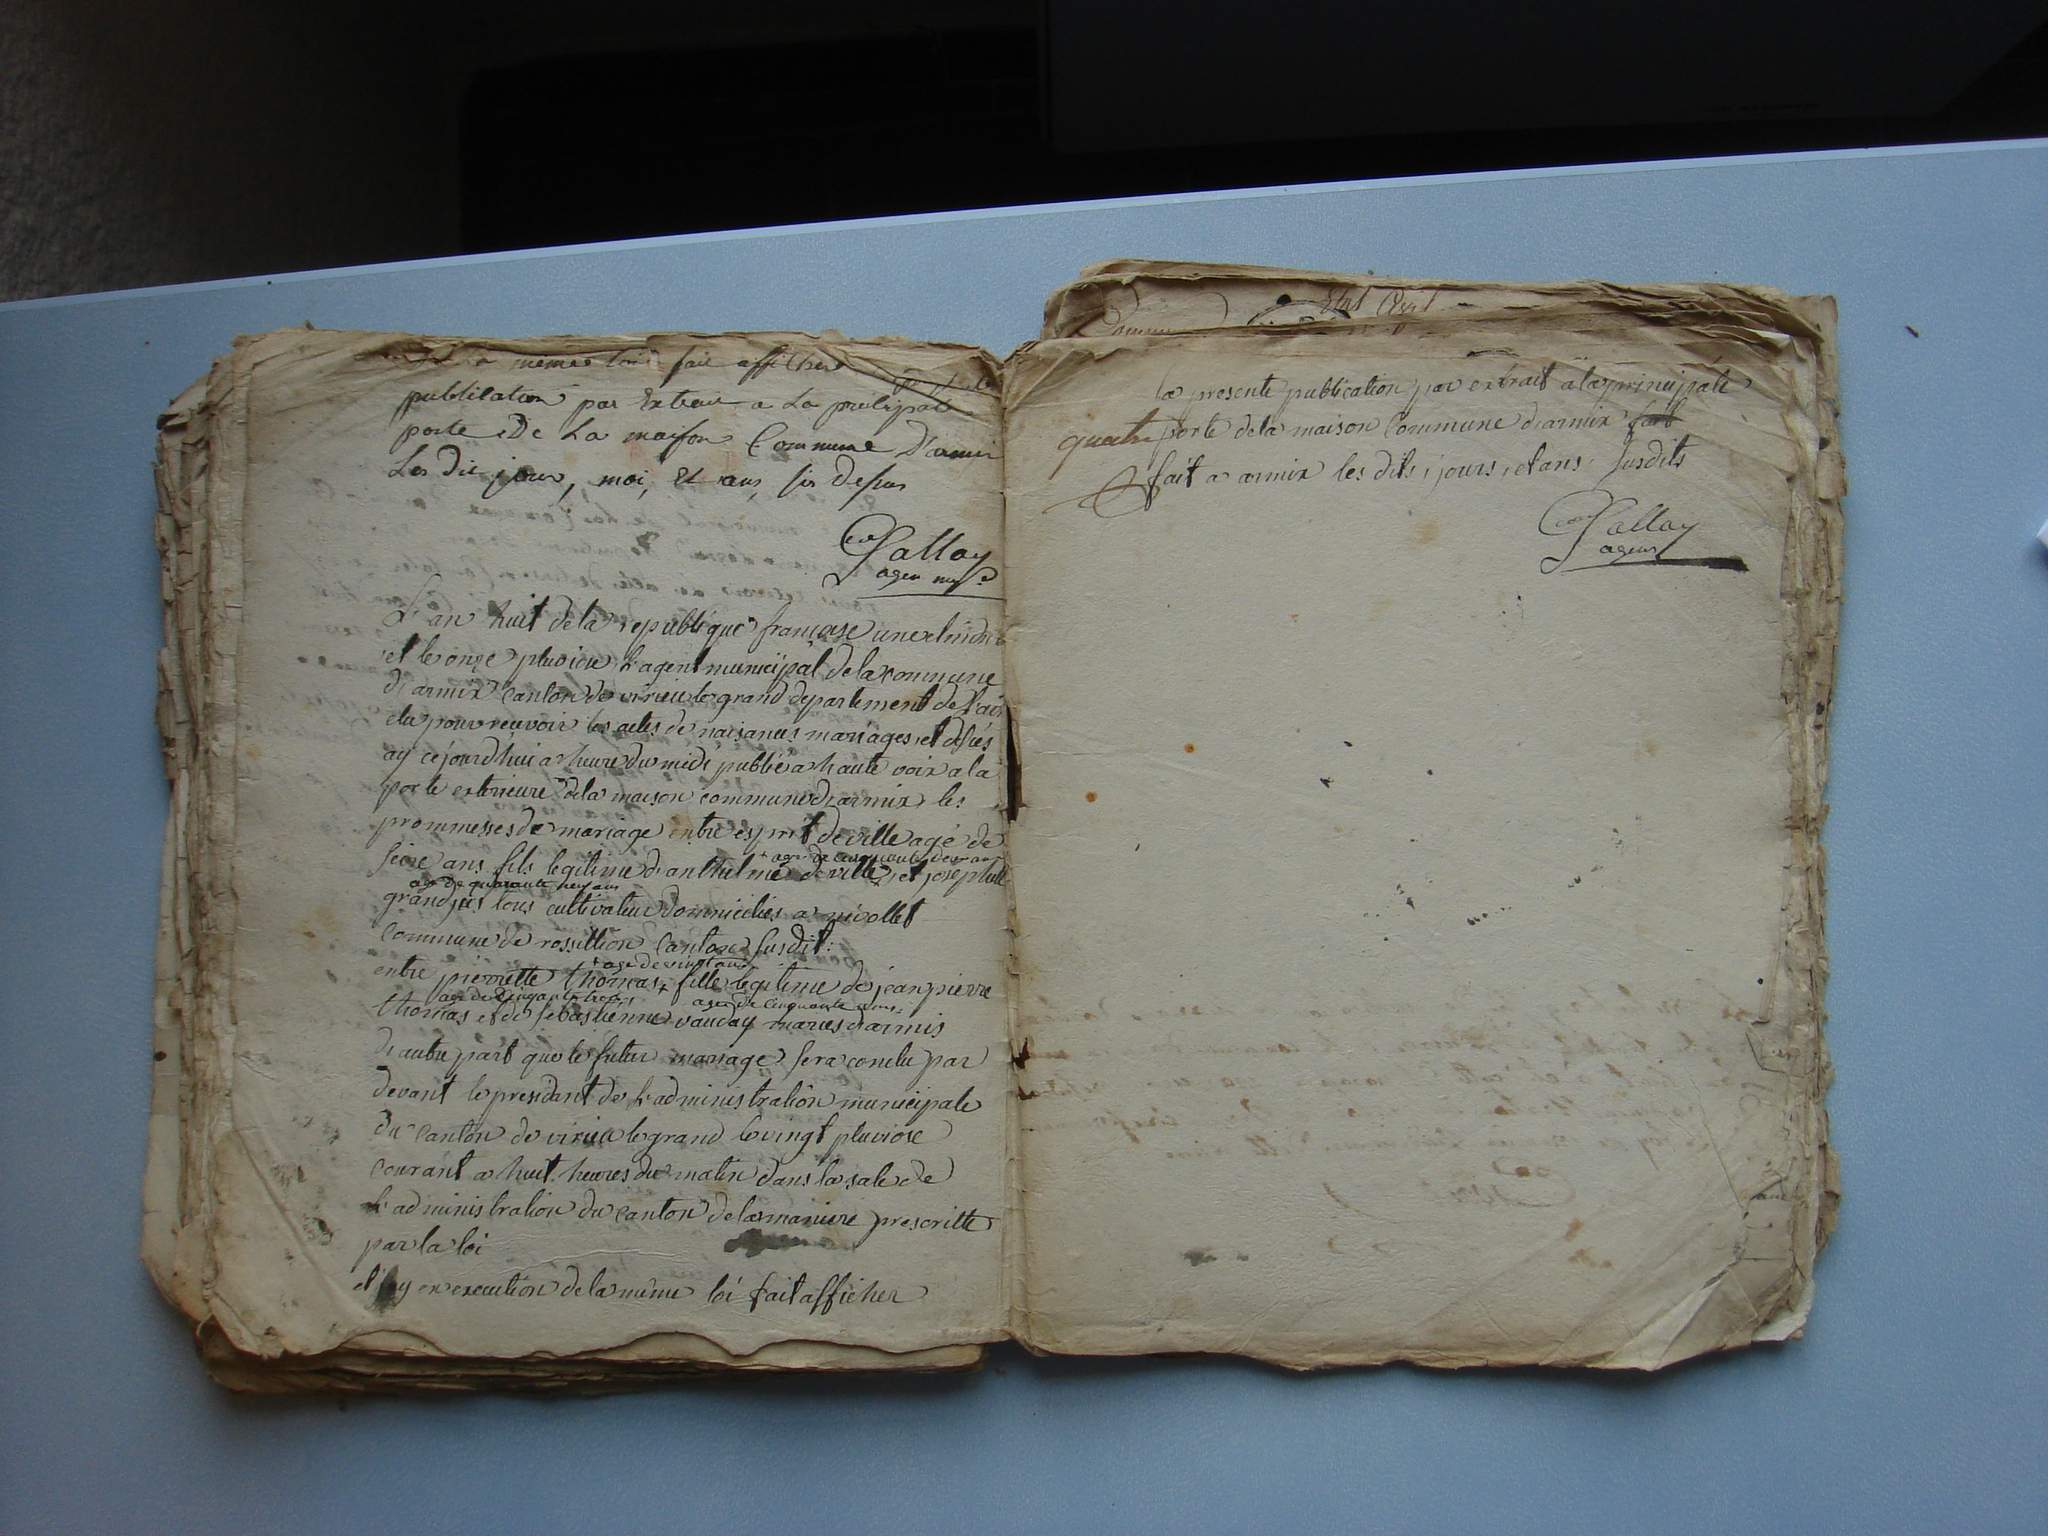 la meme loi fait afficher
publication par Extrait a La prencipale
porte De La maison Commune D'armix
Les dit jour, moi, Et ans, sus Dessus
Callay
agen mupal
L'an huit de la republique françoise une et indivi
et le onze pluviose L'agent municipal de la commune
d'armix canton de virieu le grand departement de l'ain
elu pour reçevoir les actes de naisances mariages et desés
ay cejourdhui a heure du midi publié a haute voix a la
porte exterieure de la maison commune d'armix les
prommesses de mariage entre esprit deville agé de
seize ans fils legitime d'anthelme deville + et josephte
+ agé de cinquante deux ans
age de quarante neuf ans
grandjus tous cultivateur domiciliés a nivollet
commune de rossillion canton susdit:
+ age de vingt ans
entre pierrette thomas + fille legitime de jean pierre
agé de cinquante trois
agee de cinquante ans
thomas et de sebastienne vauday maries d'armis
d'autre part que le futur mariage sera conclu par
devant le president de l'administration municipale
du canton de virieu le grand le vingt pluviose
courant a huit heures du matin dans la sale de
l'administration du canton de la maniere prescritte
par la loi
et j'ay en execution de la meme loi fait afficher
Etat Civil
Commu
la presente publication par extrait a la principale
quatre porte de la maison commune d'armix fait
fait a armix les dits, jours, et ans susdits
Callay
agent